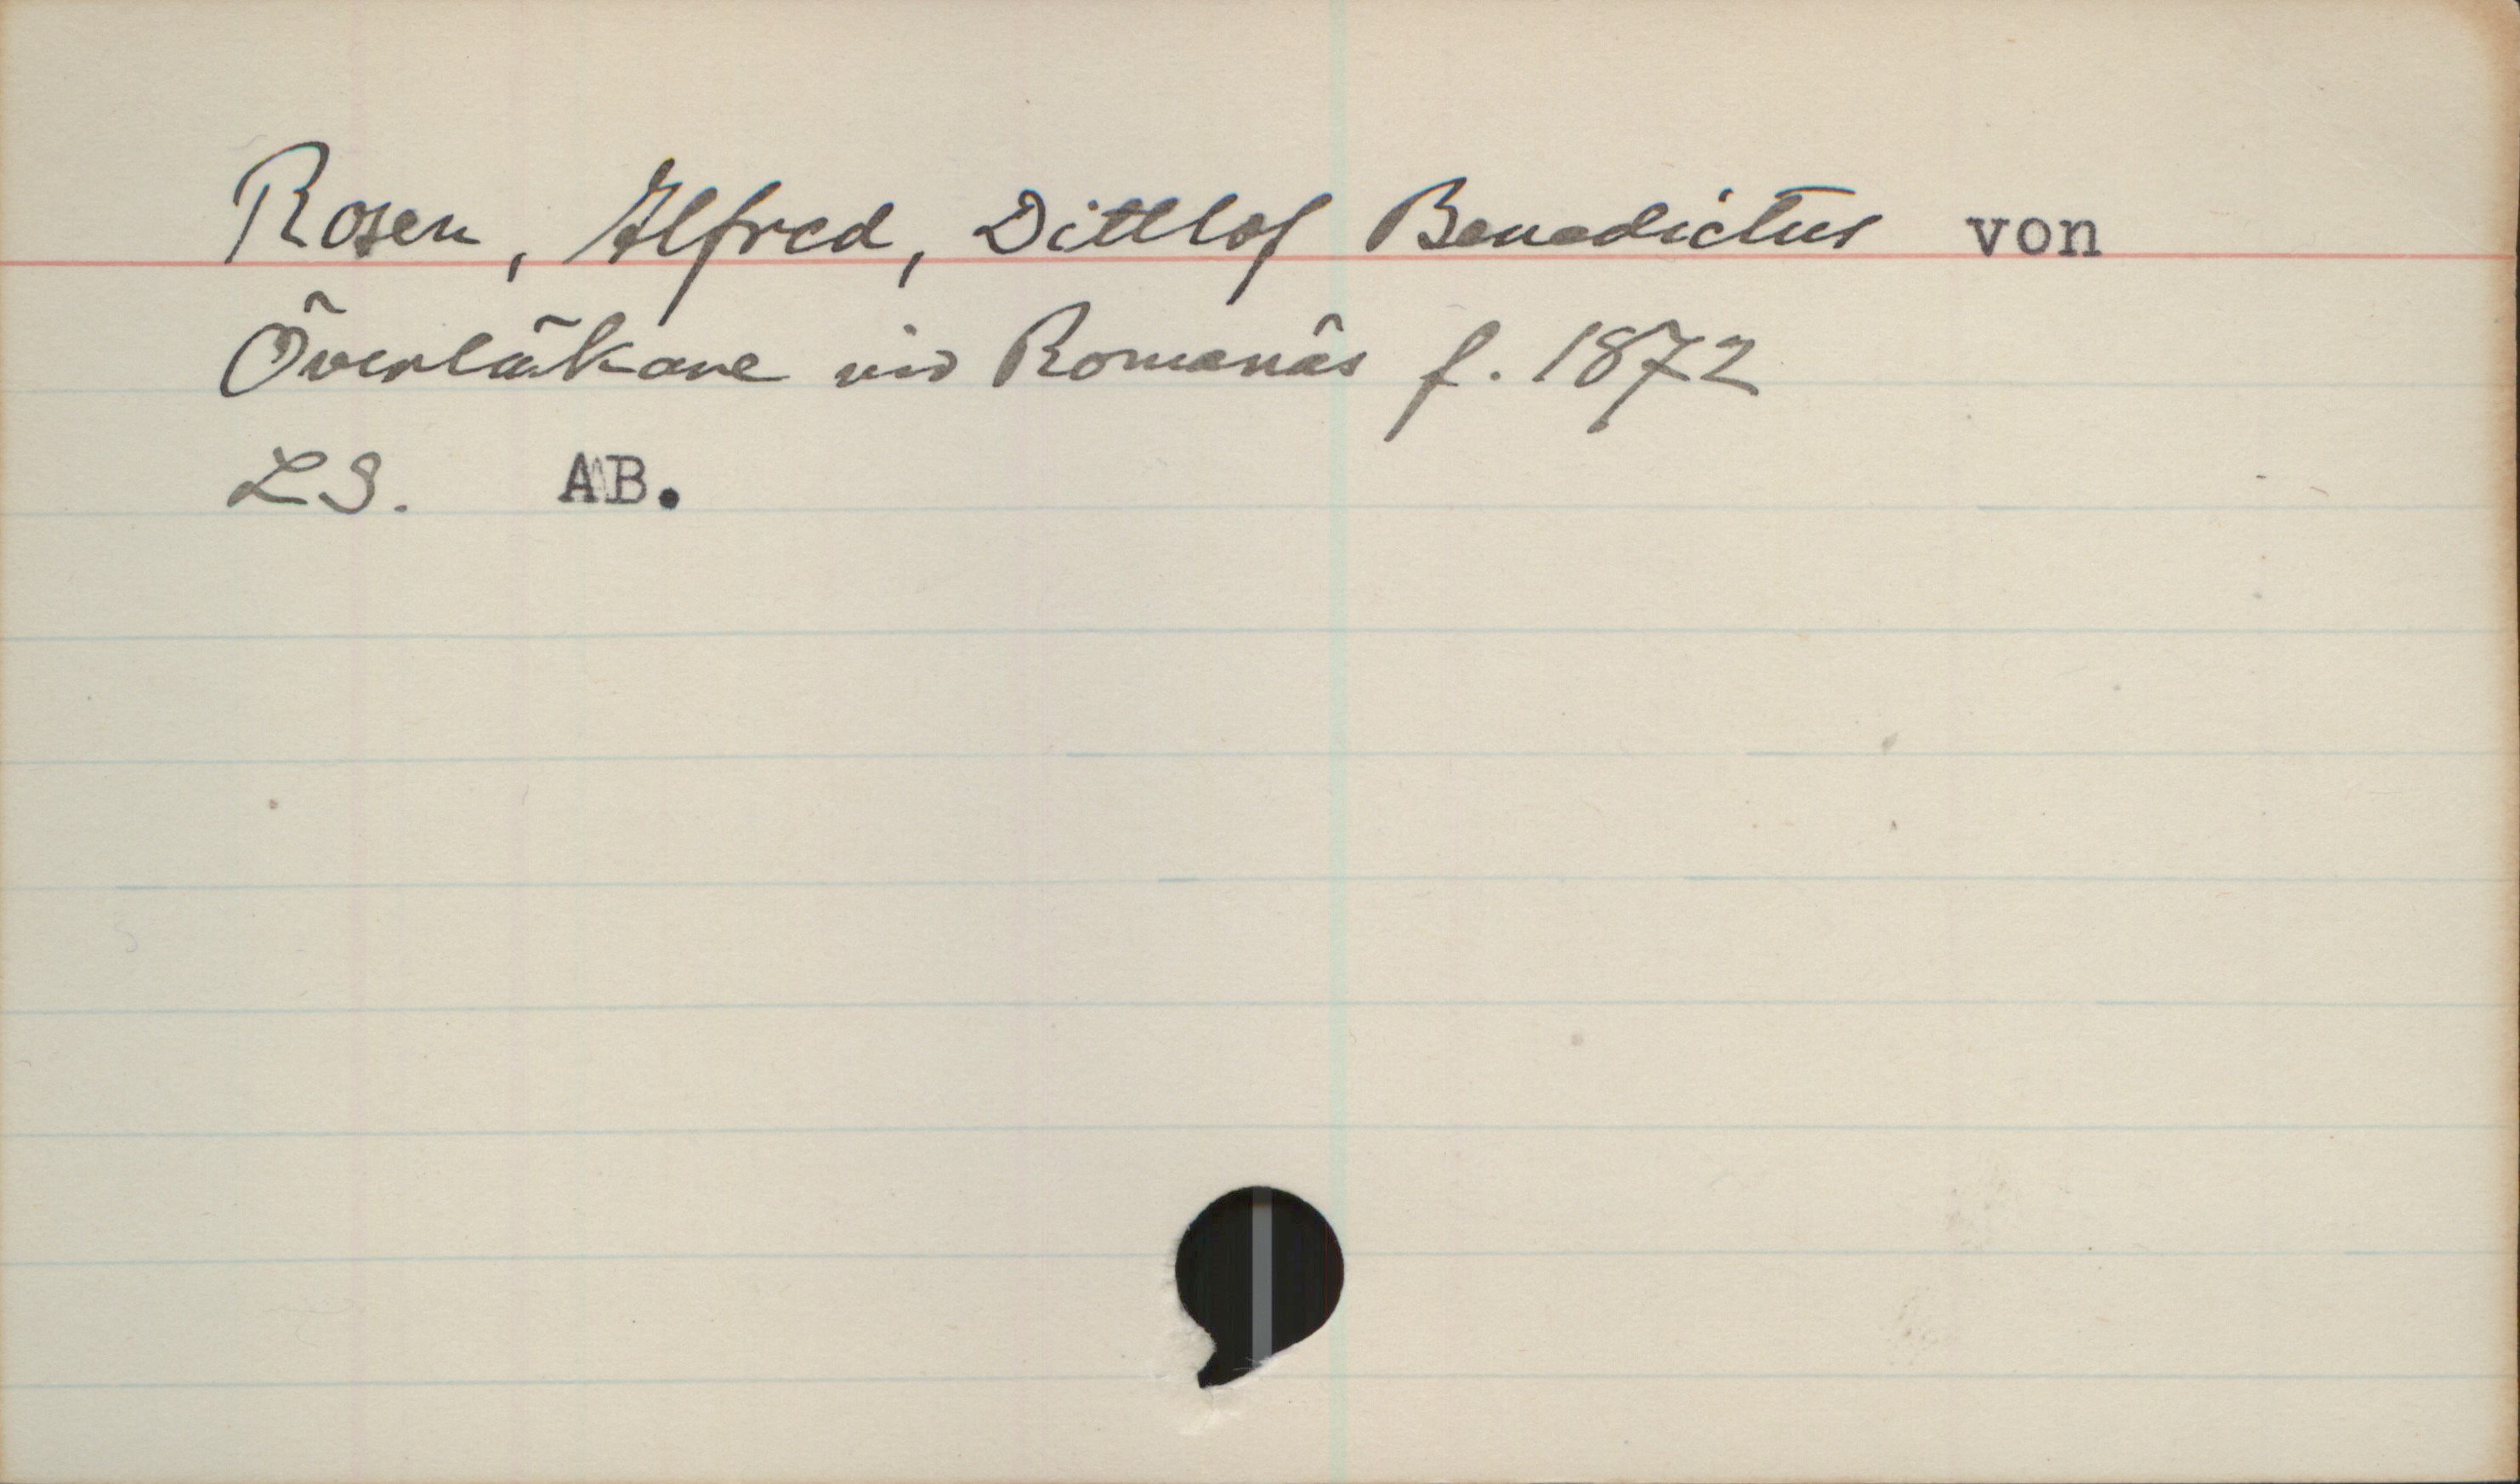 Rosen, Alfred, Dittlof Benedictus von
Överläkare vid Romanäs f. 1872
LS. AB.